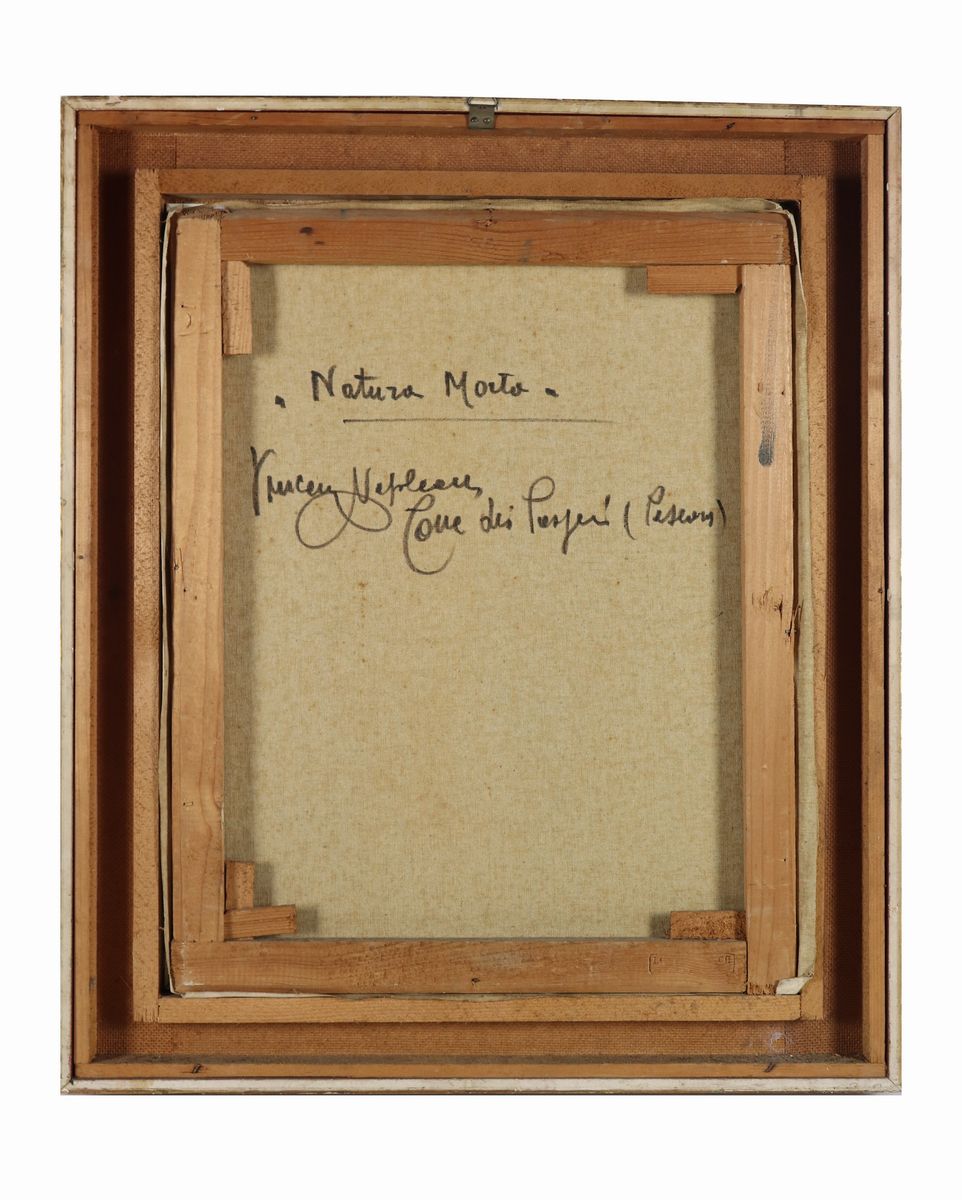 . Natura Morta .
Vincenzo Napoleone
Torre dei Passeri (Pescara)